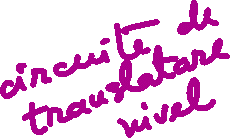 circuite de
translatare
nivel